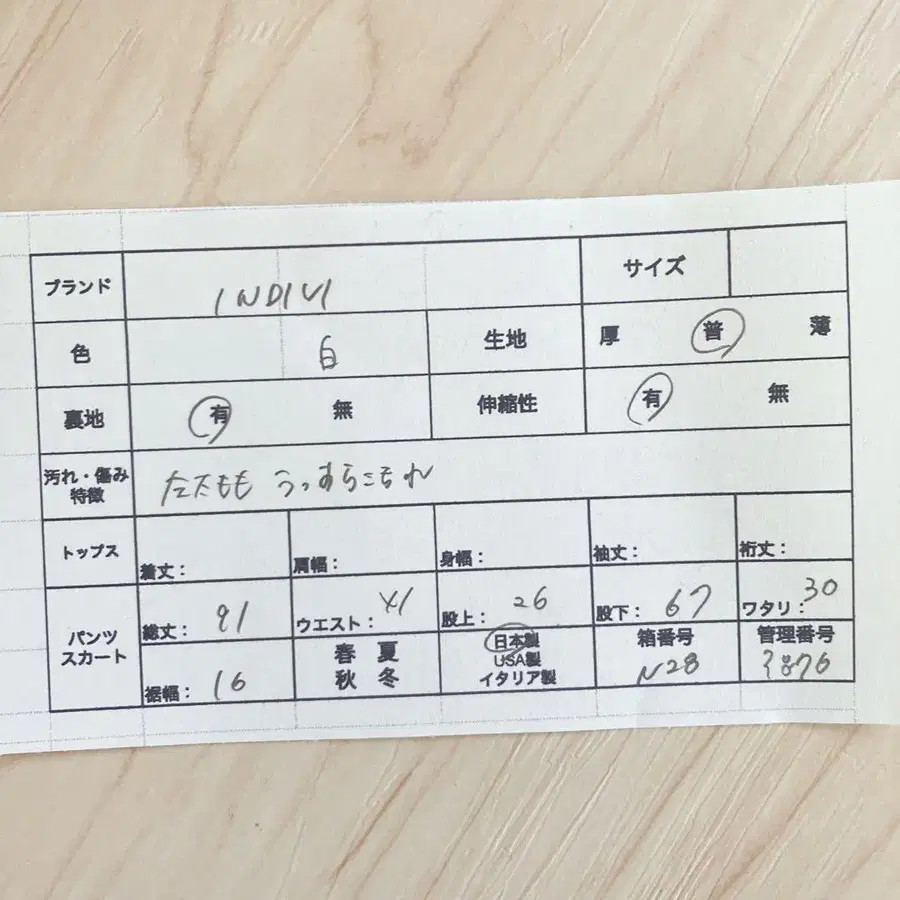 ブランド INDIVI サイズ
色 白 生地 厚 普 薄
裏地 有 無 伸縮性 有 無
汚れ・傷み
特徴 左太もも うっすらよごれ
トップス 着丈: 肩幅: 身幅: 袖丈: 裄丈:
パンツ
スカート
総丈: 91 ウエスト: 股上: 26 股下: 67 ワタリ: 30
裾幅: 16
春 夏
秋 冬
日本製
USA製
イタリア製
箱番号
N28
管理番号